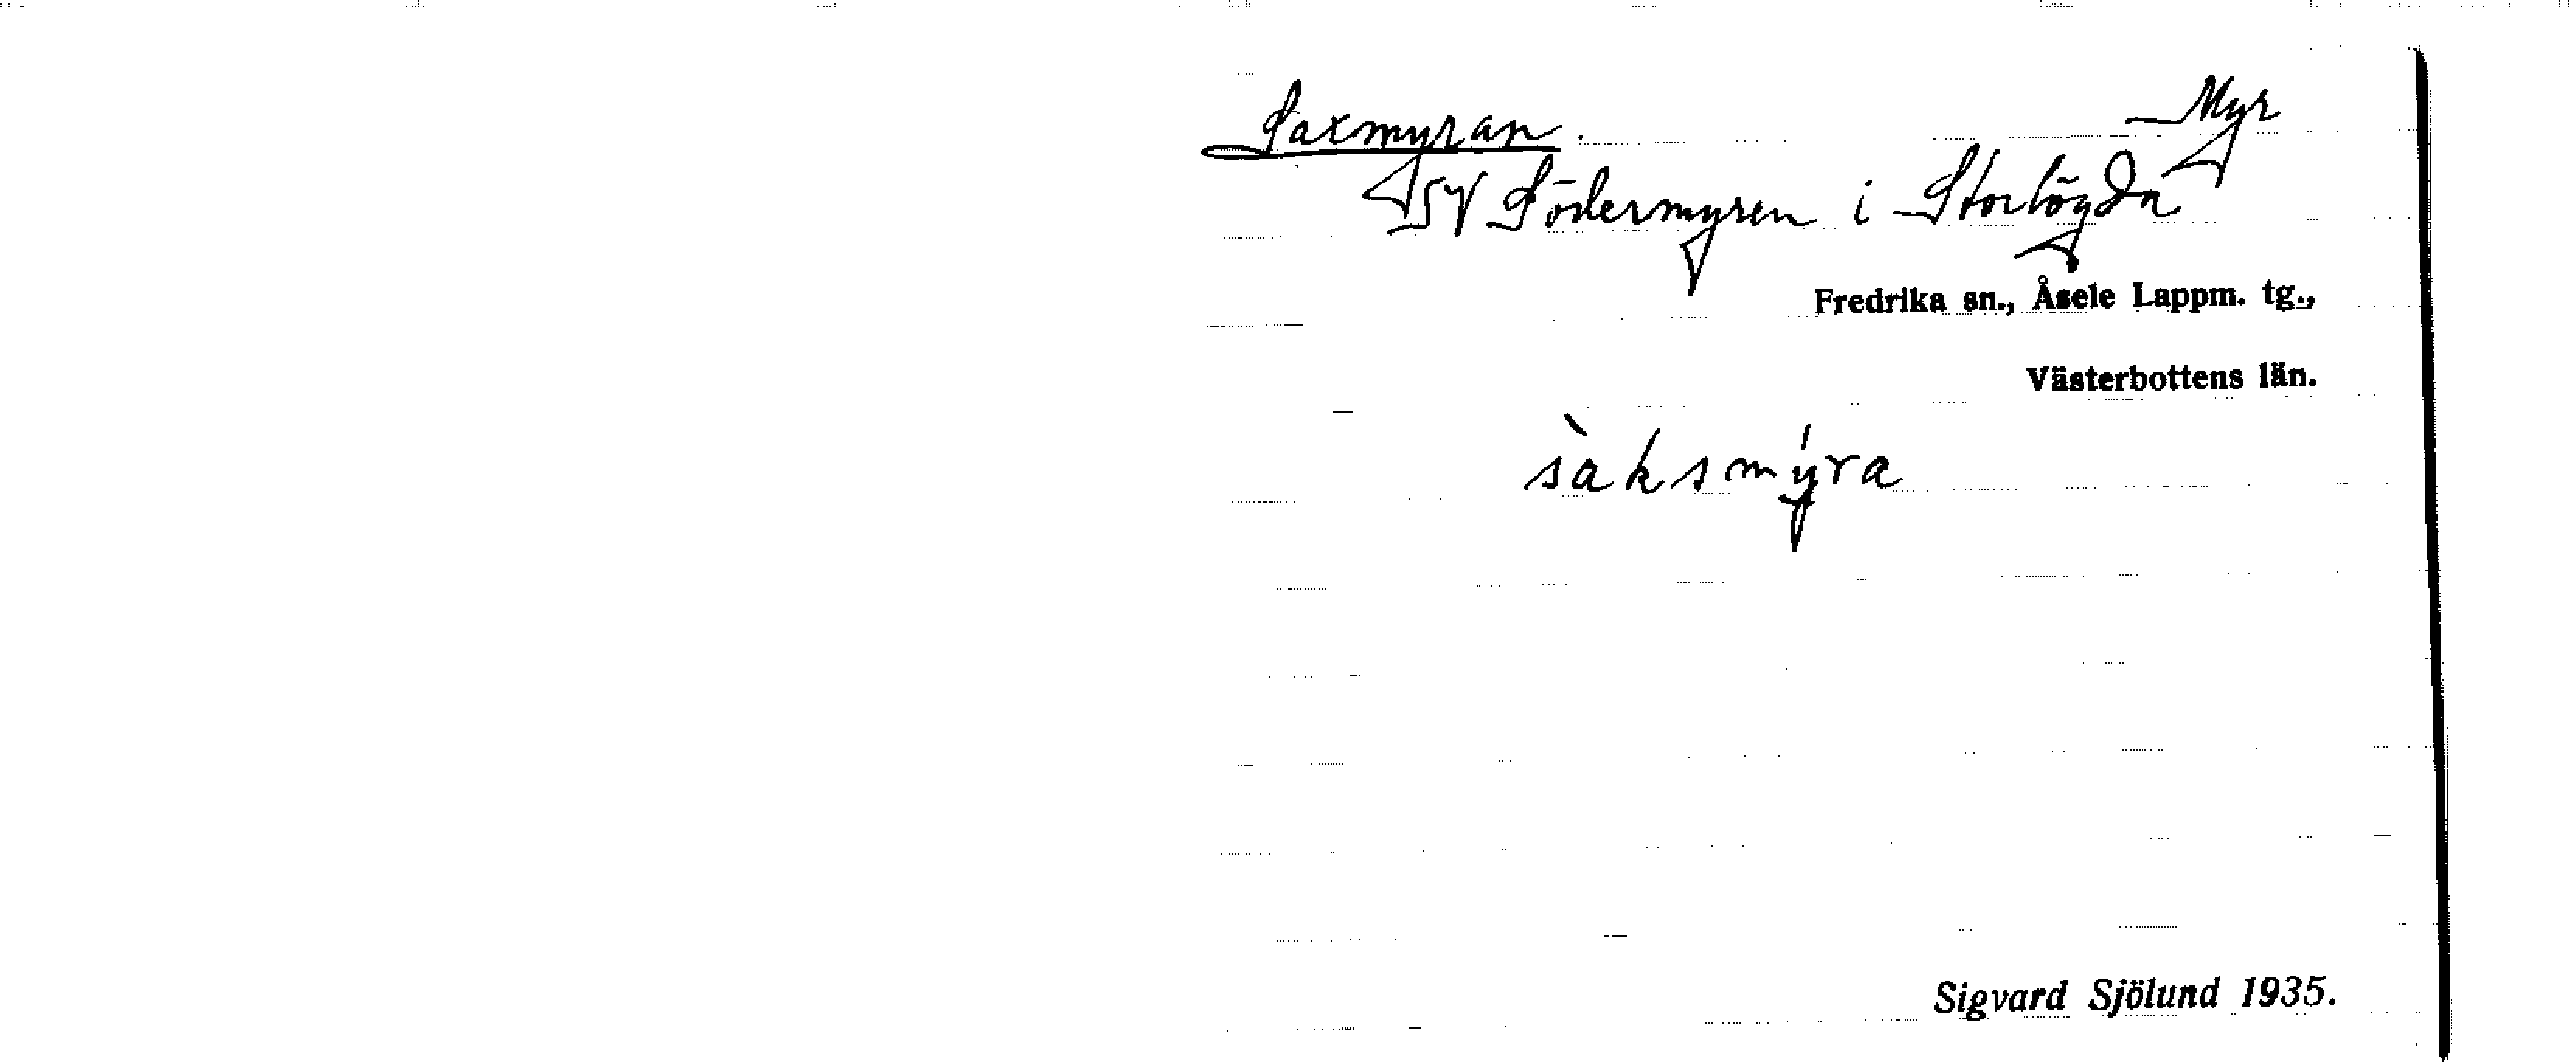 Saxmyran. Myr
SV Södermyren i Storlögda
Fredrika sn., Åsele Lappm. tg.,
Västerbottens län.
sàksmýra
Sigvard Sjölund 1935.